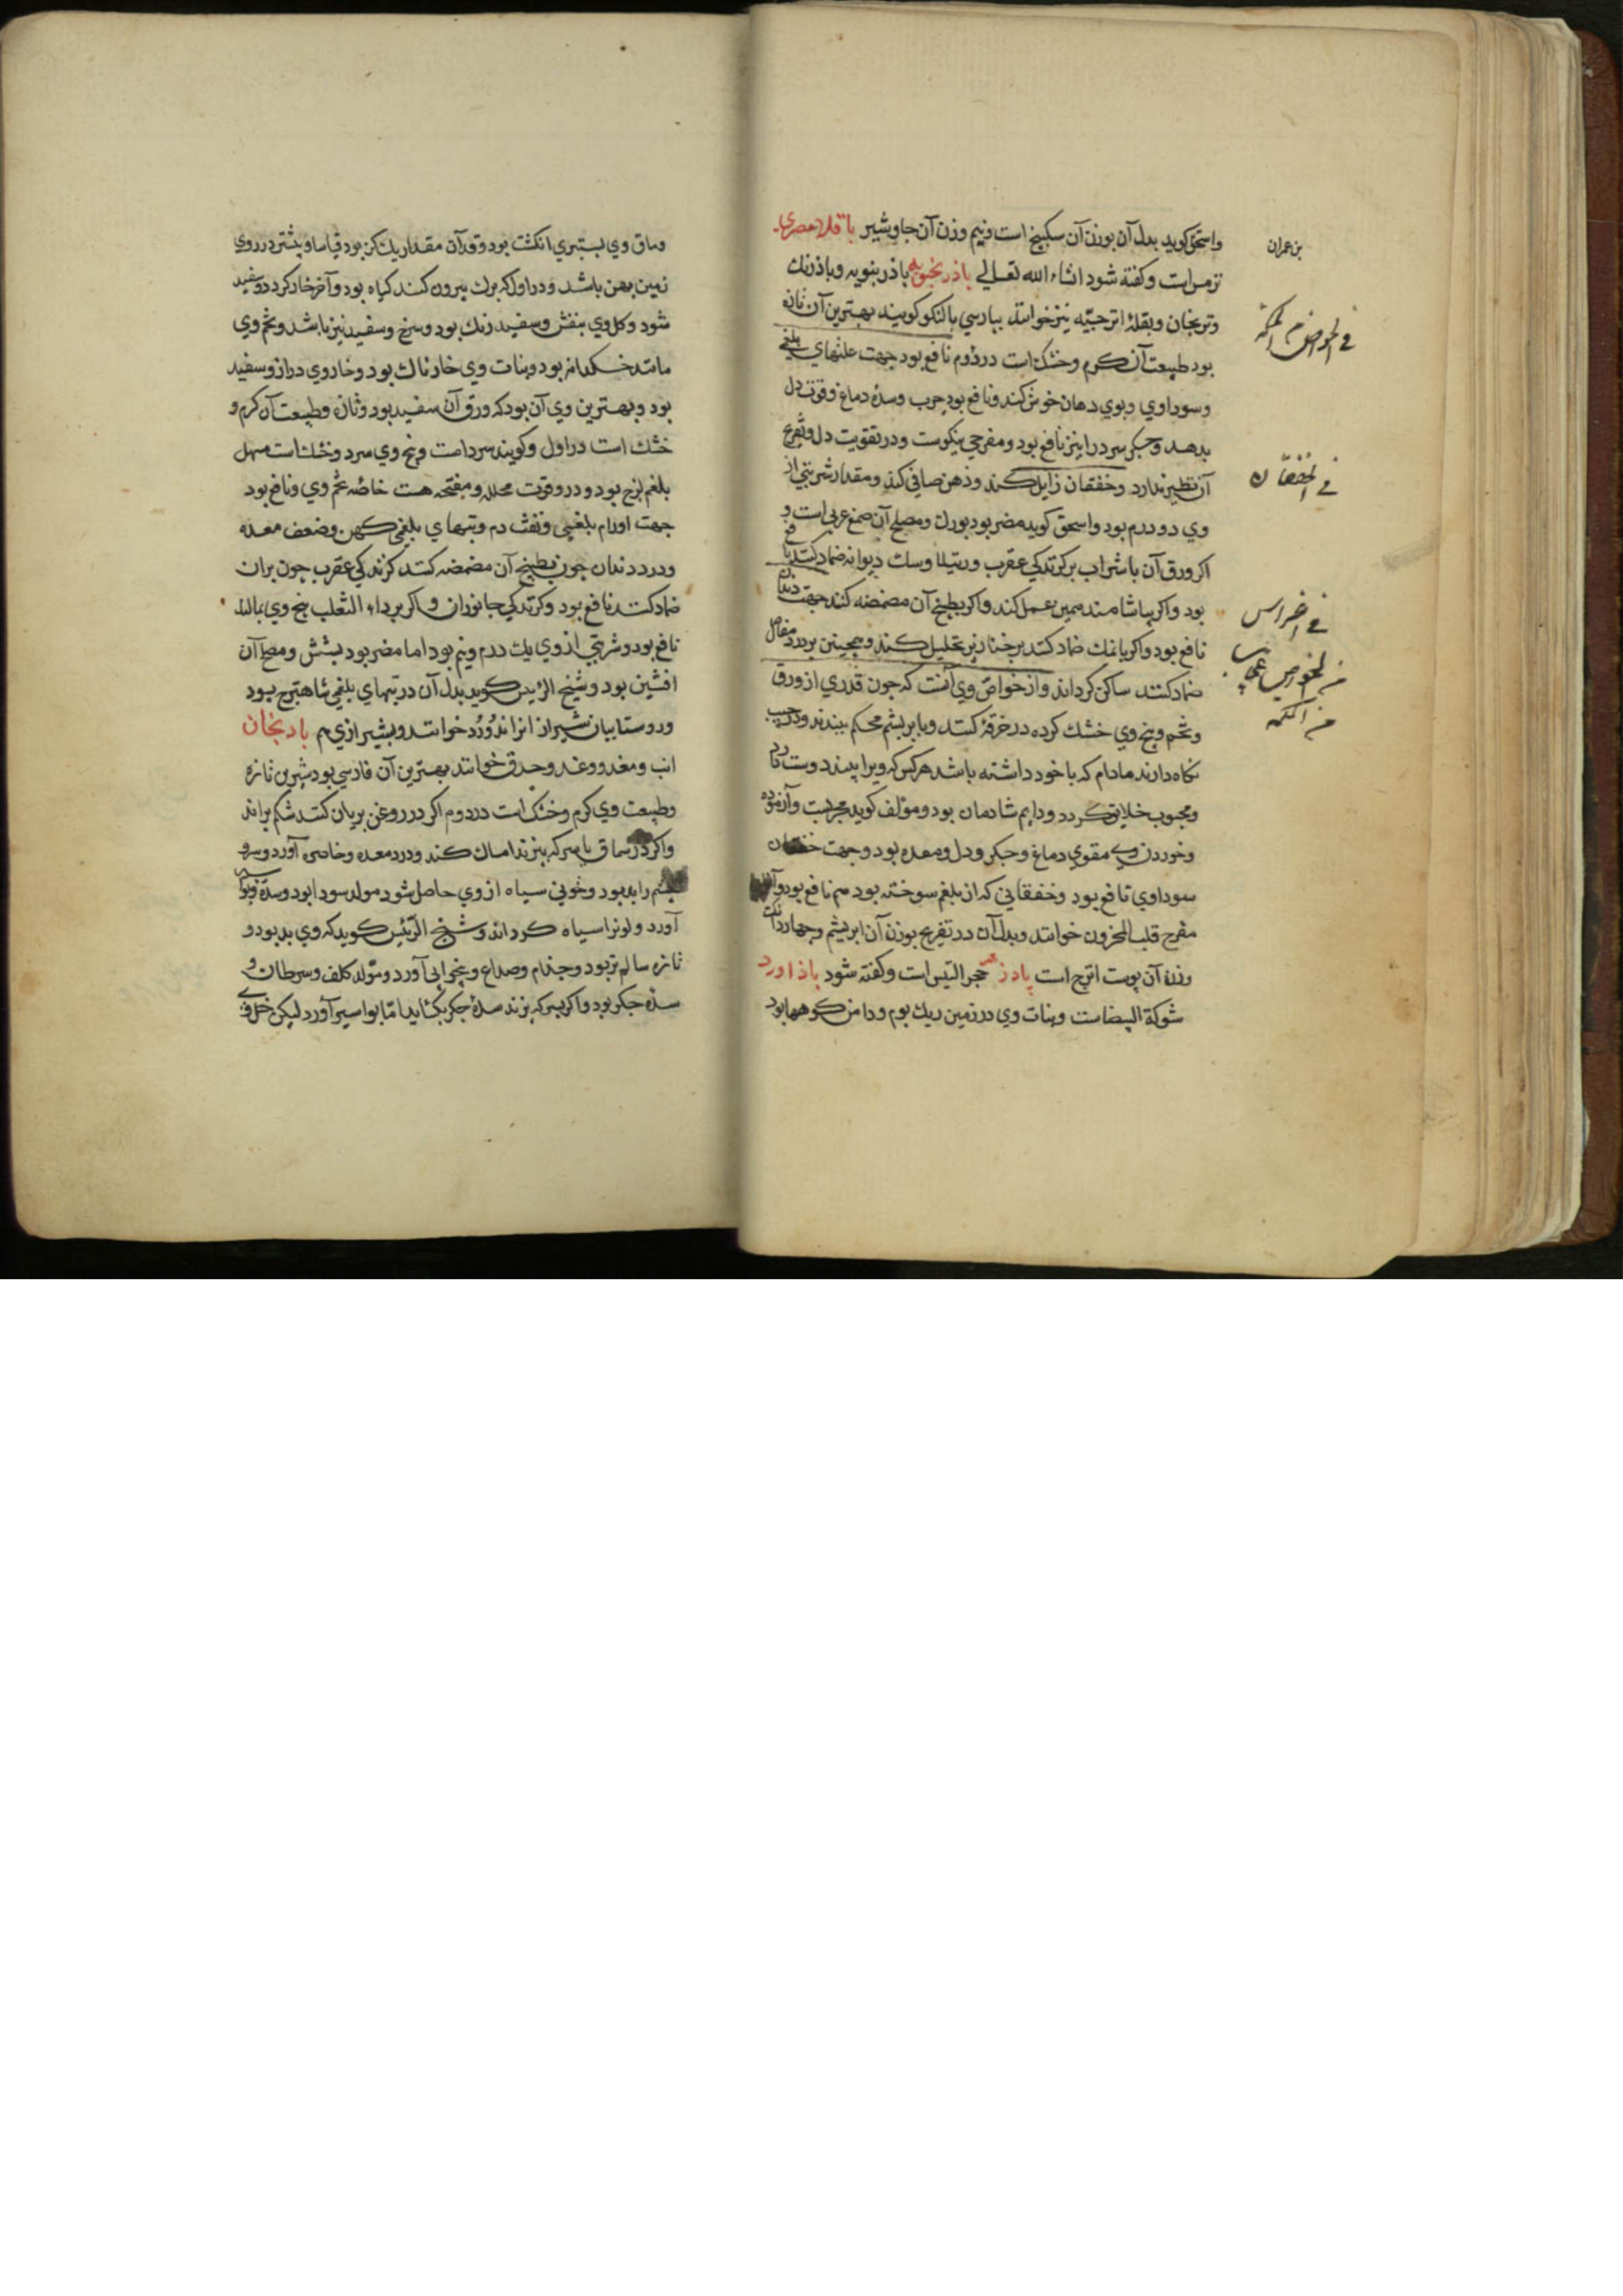 واسحق کوید بدل آن بوزن آن سکبینج است ونیم وزن آن جاوشیر باقلاء مصری
ترمس است وکفته شود انشاء الله تعالی باذرنجبویه باذرنبویه وباذرنك
وترنجان وبقلة اترجیّه نیز خوانند بپارسی بالنکو کویند بهترین آن تازه
بود طبیعت آن کرم وخشك است در دوم نافع بود جهت علتهای بلغمی
وسوداوی وبوی دهان خوش کند ونافع بود جرب وسدۀ دماغ وقوت دل
بدهد وجکر سرد را نیز نافع بود ومفرحی نیکوست ودر تقویت دل وتفریح
آن نظیر ندارد وخفقان زایل کند وذهن صافی کند ومقدار شربتی از
وی دو درم بود واسحق کوید مضر بود بورك ومصلح آن صمغ عربی است و
اکر ورق آن با شراب بر کزندکی عقرب ورتیلا وسك دیوانه ضماد کنند نافع
بود واکر بیاشامند همین عمل کند واکر بطبیخ آن مضمضه کنند جهت دندان
نافع بود واکر با نمك ضماد کنند بر خنازیر تحلیل کند وهمچنین بر درد مفاصل
ضماد کنند ساکن کرداند واز خواصّ وی آنست که جون قدری از ورق
وتخم وبیخ وی خشك کرده در خرقۀ کنند وبا بریشم محکم ببندند ودر جیب
نکاه دارند مادام که با خود داشته باشد هر کس که ویرا بیند دوست دارد
ومحبوب خلایق کردد ودایم شادمان بود ومؤلف کوید مجربست وآزموده
وخوردن وی مقوی دماغ وجکر ودل ومعده بود وجهت خفقان
سوداوی نافع بود وخفقانی که از بلغم سوخته بود هم نافع بود
مفرح قلب المحزون خوانند وبدل آن در تفریح بوزن آن ابریشم وچهار دانك
وزن آن پوست اترج است پادزهر حجر التیس است وکفته شود باذاورد
شوکة البیضاست ونبات وی در زمین ریك بوم ودامن کوهها بود
بن عمران
فی الخواص
فی الخفقان
فی اضراس
من الخواص عجایب
من الحکمه
وساق وی بستبری انکشت بود وقد آن مقدار یك کز بود قیاسا وبیشتر در روی
زمین پهن باشد ودر اول که برك بیرون کند کیاه بود وآخر خار کردد وسفید
شود وکل وی بنفش وسفید رنك بود وسرخ وسفید نیز باشد وتخم وی
مانند خسکدانه بود ونبات وی خارناك بود وخار وی دراز وسفید
بود وبهترین وی آن بود که ورق آن سفید بود وتازه وطبیعت آن کرم و
خشك است در اول وکویند سرد است وبیخ وی سرد وخشك است مسهل
بلغم لزج بود ودر وقوت محلله ومفتحه هست خاصّه تخم وی ونافع بود
جهت اورام بلغمی ونفث دم وتبهای بلغمی کهن وضعف معده
ودرد دندان چون بطبیخ آن مضمضه کنند کزندکی عقرب چون بران
ضماد کنند نافع بود وکزندکی جانوران واکر بر داء الثعلب بیخ وی بمالند
نافع بود وشربتی از وی یك درم ونیم بود اما مضر بود بشش ومصلح آن
افسنتین بود وشیخ الرئیس کوید بدل آن در تبهای بلغمی شاهترج بود
وروستاییان شیراز انرا اندوُزد خوانند وبشیرازی هم بادنجان
انب ومغد ووغد وحدق خوانند بهترین آن فارسی بود شیرین تازه
وطبیعت وی کرم وخشك است در دوم اکر در روغن بریان کنند شکم براند
واکر در سماق یا سرکه پزند امساك کند ودرد معده وخاصره آورد وسر و
چشم را بد بود وخونی سیاه از وی حاصل شود مولد سودا بود وسدّه وبواسیر
آورد ولون را سیاه کرداند وشیخ الرّئیس کوید که وی بد بود و
تازه سالم تر بود وجذام وصداع وبیخوابی آورد ومولّد کلف وسرطان و
سدّه جکر بود واکر بسرکه پزند سدۀ جکر بکشاید امّا بواسیر آورد لیکن